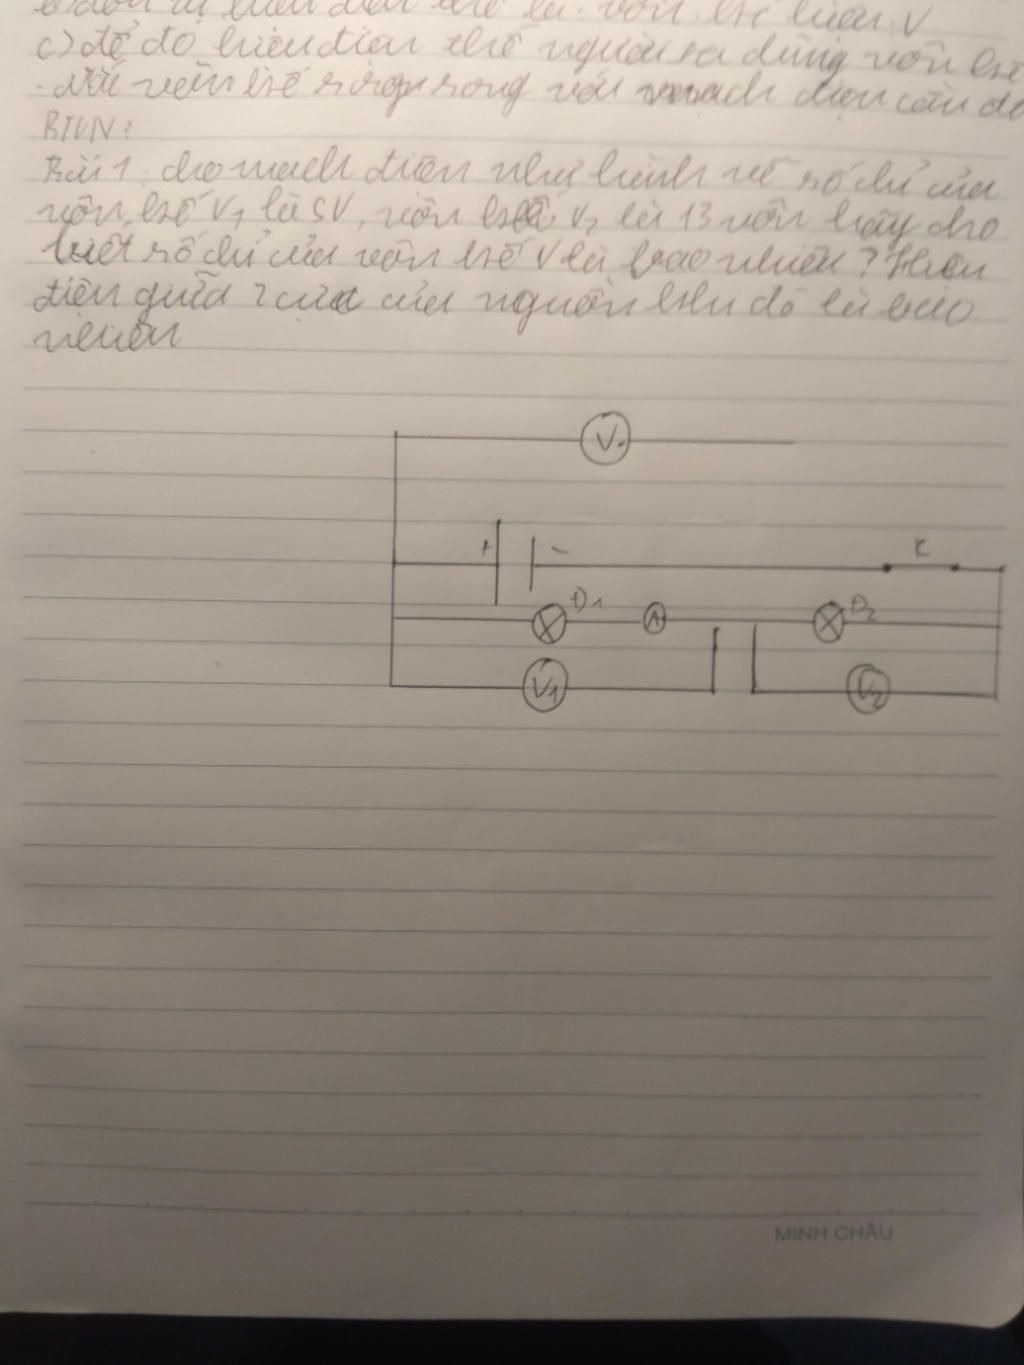 c) để đo hiệu điện thế người ta dùng vôn kế
- mắc vôn kế song song với mạch điện cần đo
BTVN:
Bài 1: cho mạch điện như hình vẽ số chỉ của
vôn kế V1 là 5V, vôn kế V2 là 13 vôn hãy cho
biết số chỉ của vôn kế V là bao nhiêu? Hiệu
điện giữa 2 cực của nguồn khi đó là bao
nhiêu
V
+ - K
Đ1 A Đ2
V1 V2
MINH CHÂU